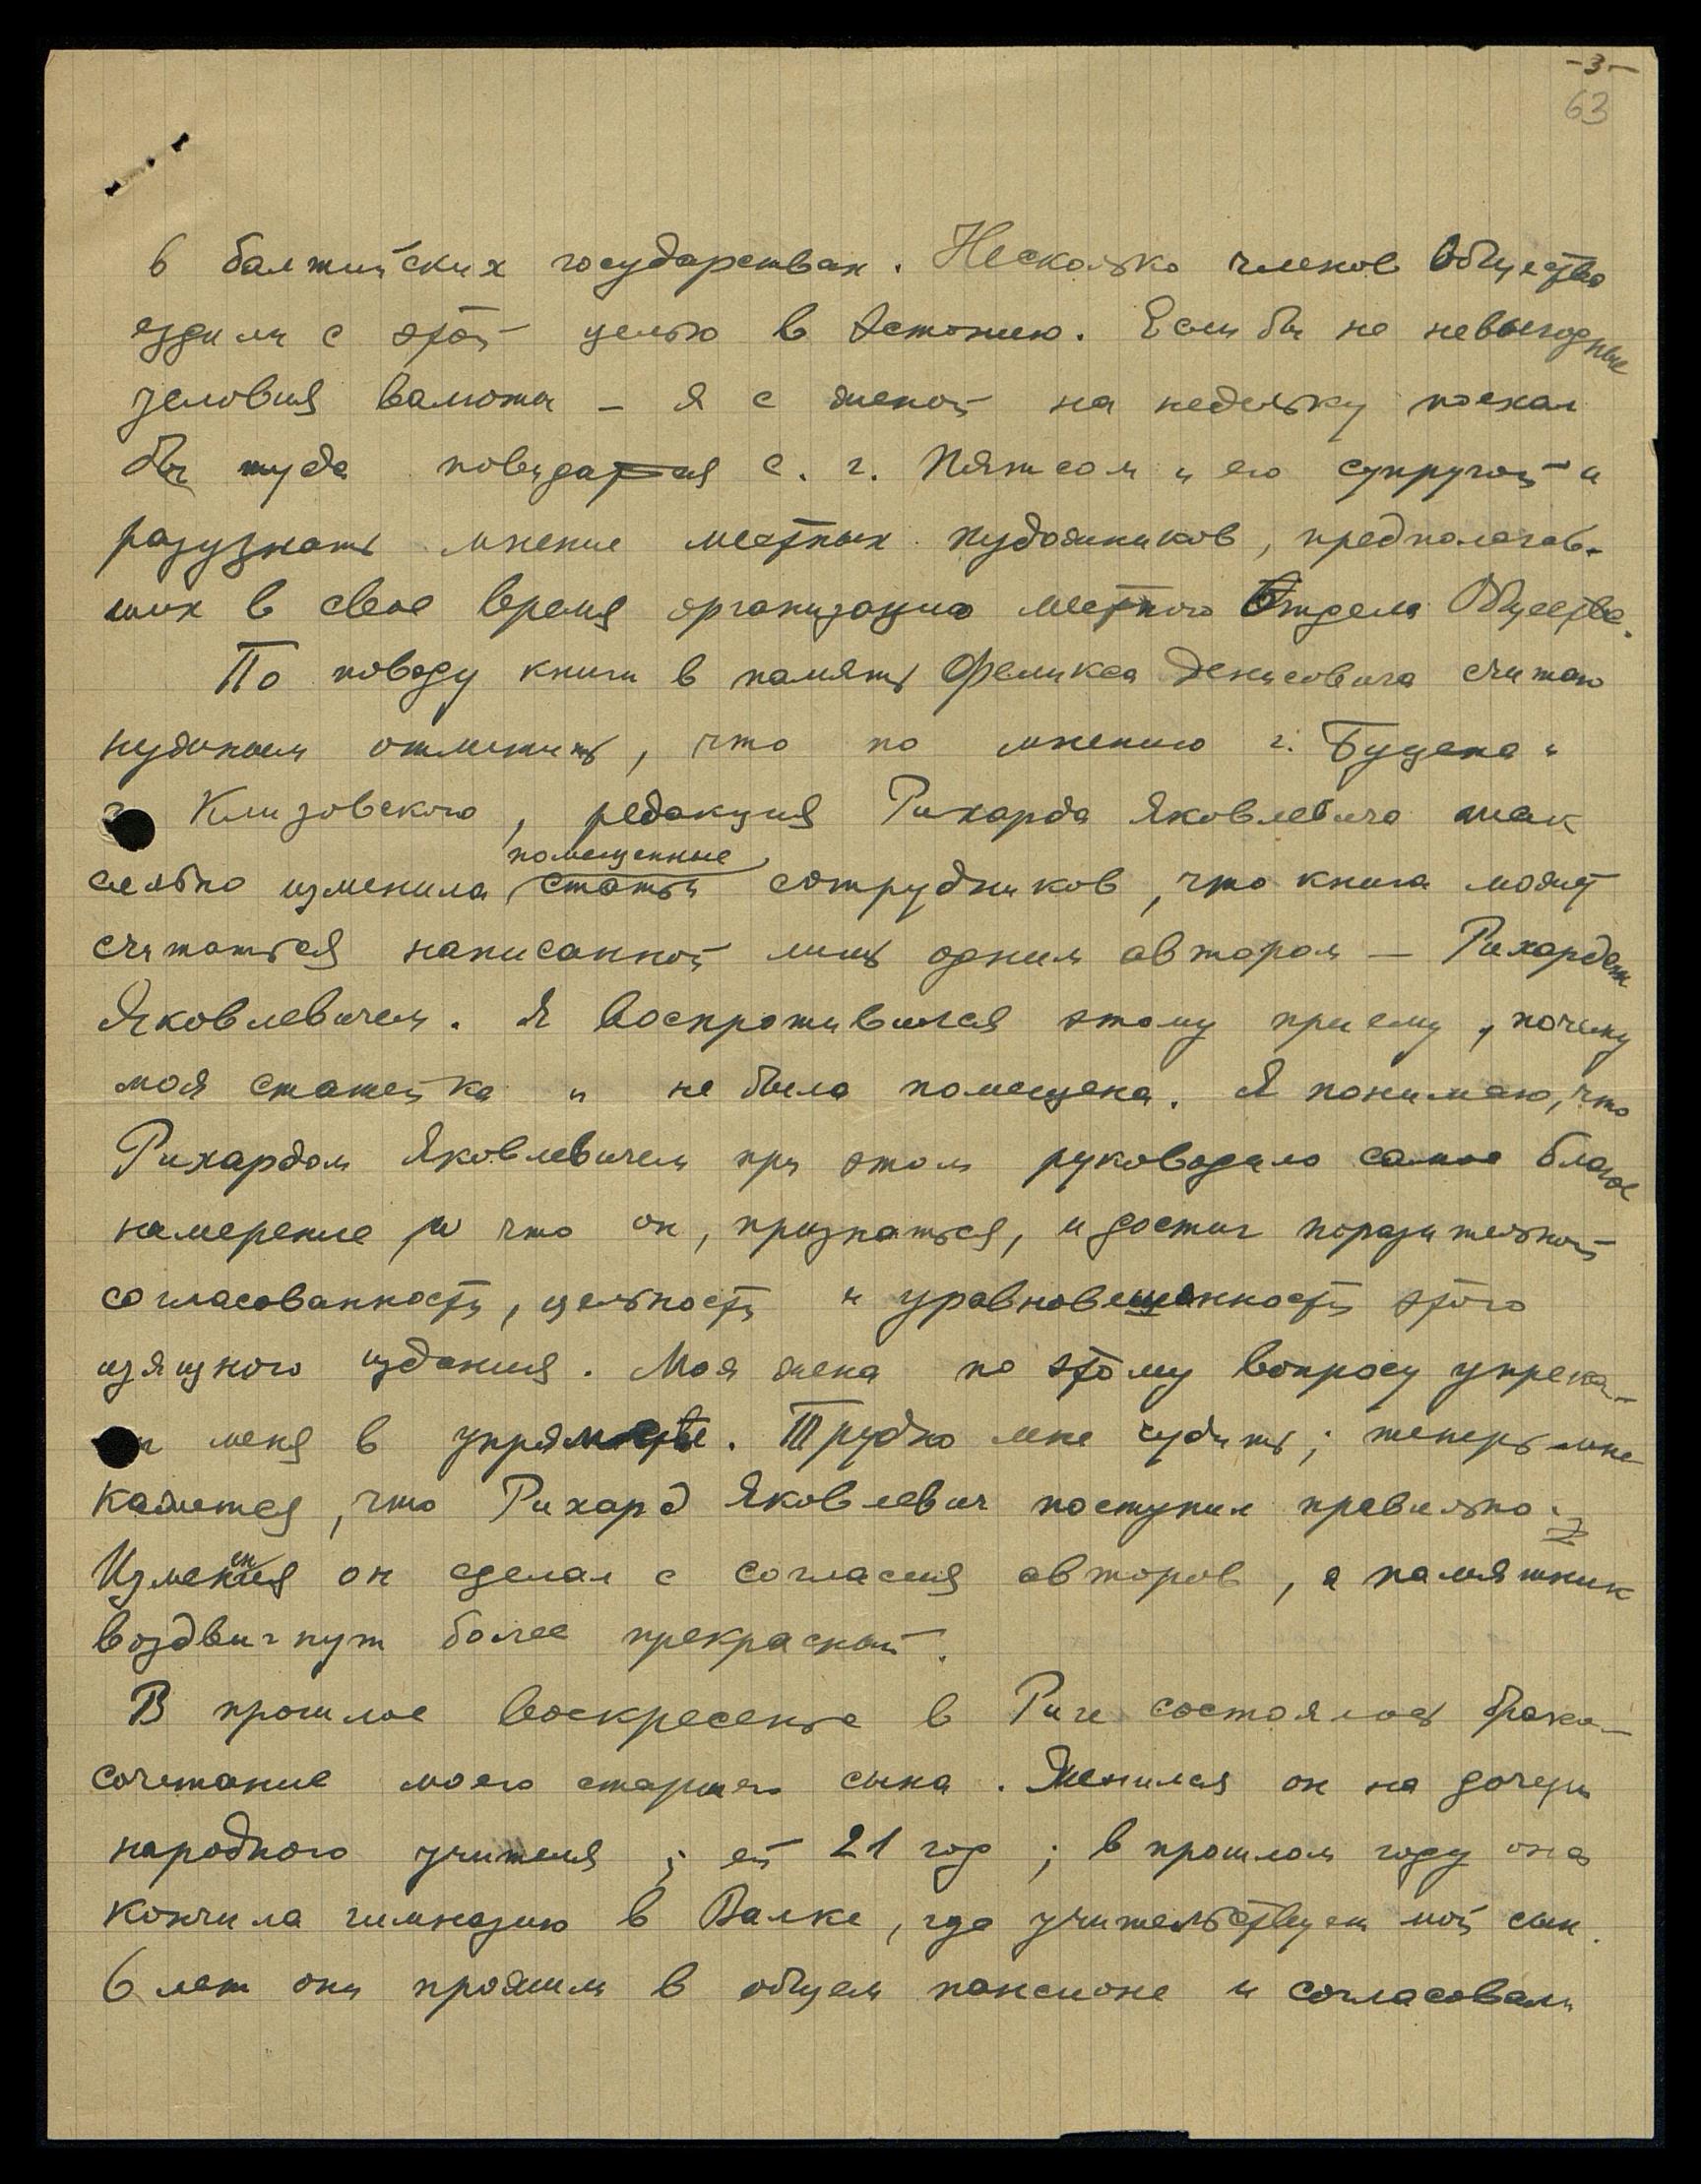 -3-
63
в балтийских государствах. Несколько членов Общества
ездили с этой целью в Эстонию. Если бы не невыгодные
условия валюты – я с женой на недельку поехал
бы туда повидаться с г. Пятсом и его супругой и
разузнать мнение местных художников, предполагав-
ших в свое время организацию местного Отдела Общества.
По поводу книги в память Феликса Денисовича считаю
нужным отметить, что по мнению г. Буцена и
г. Клизовского, редакция Рихарда Яковлевича так
сильно изменила помещенные статьи сотрудников, что книга может
считаться написанной лишь одним автором – Рихардом
Яковлевичем. Я воспротивился этому приему, почему
моя статейка и не была помещена. Я понимаю, что
Рихардом Яковлевичем при этом руководило самое благое
намерение и что он, признаться, и достиг поразительной
согласованности, цельности и уравновешенности этого
изящного издания. Моя жена по этому вопросу упрека-
ла меня в упрямстве. Трудно мне судить; теперь мне
кажется, что Рихард Яковлевич поступил правильно.
Изменения он сделал с согласия авторов, а памятник
воздвигнут более прекрасный.
В прошлое воскресенье в Риге состоялось брако-
сочетание моего старшего сына. Женился он на дочери
народного учителя; ей 21 год; в прошлом году она
кончила гимназию в Валке, где учительствует мой сын.
6 лет они прожили в общем пансионе и согласовали